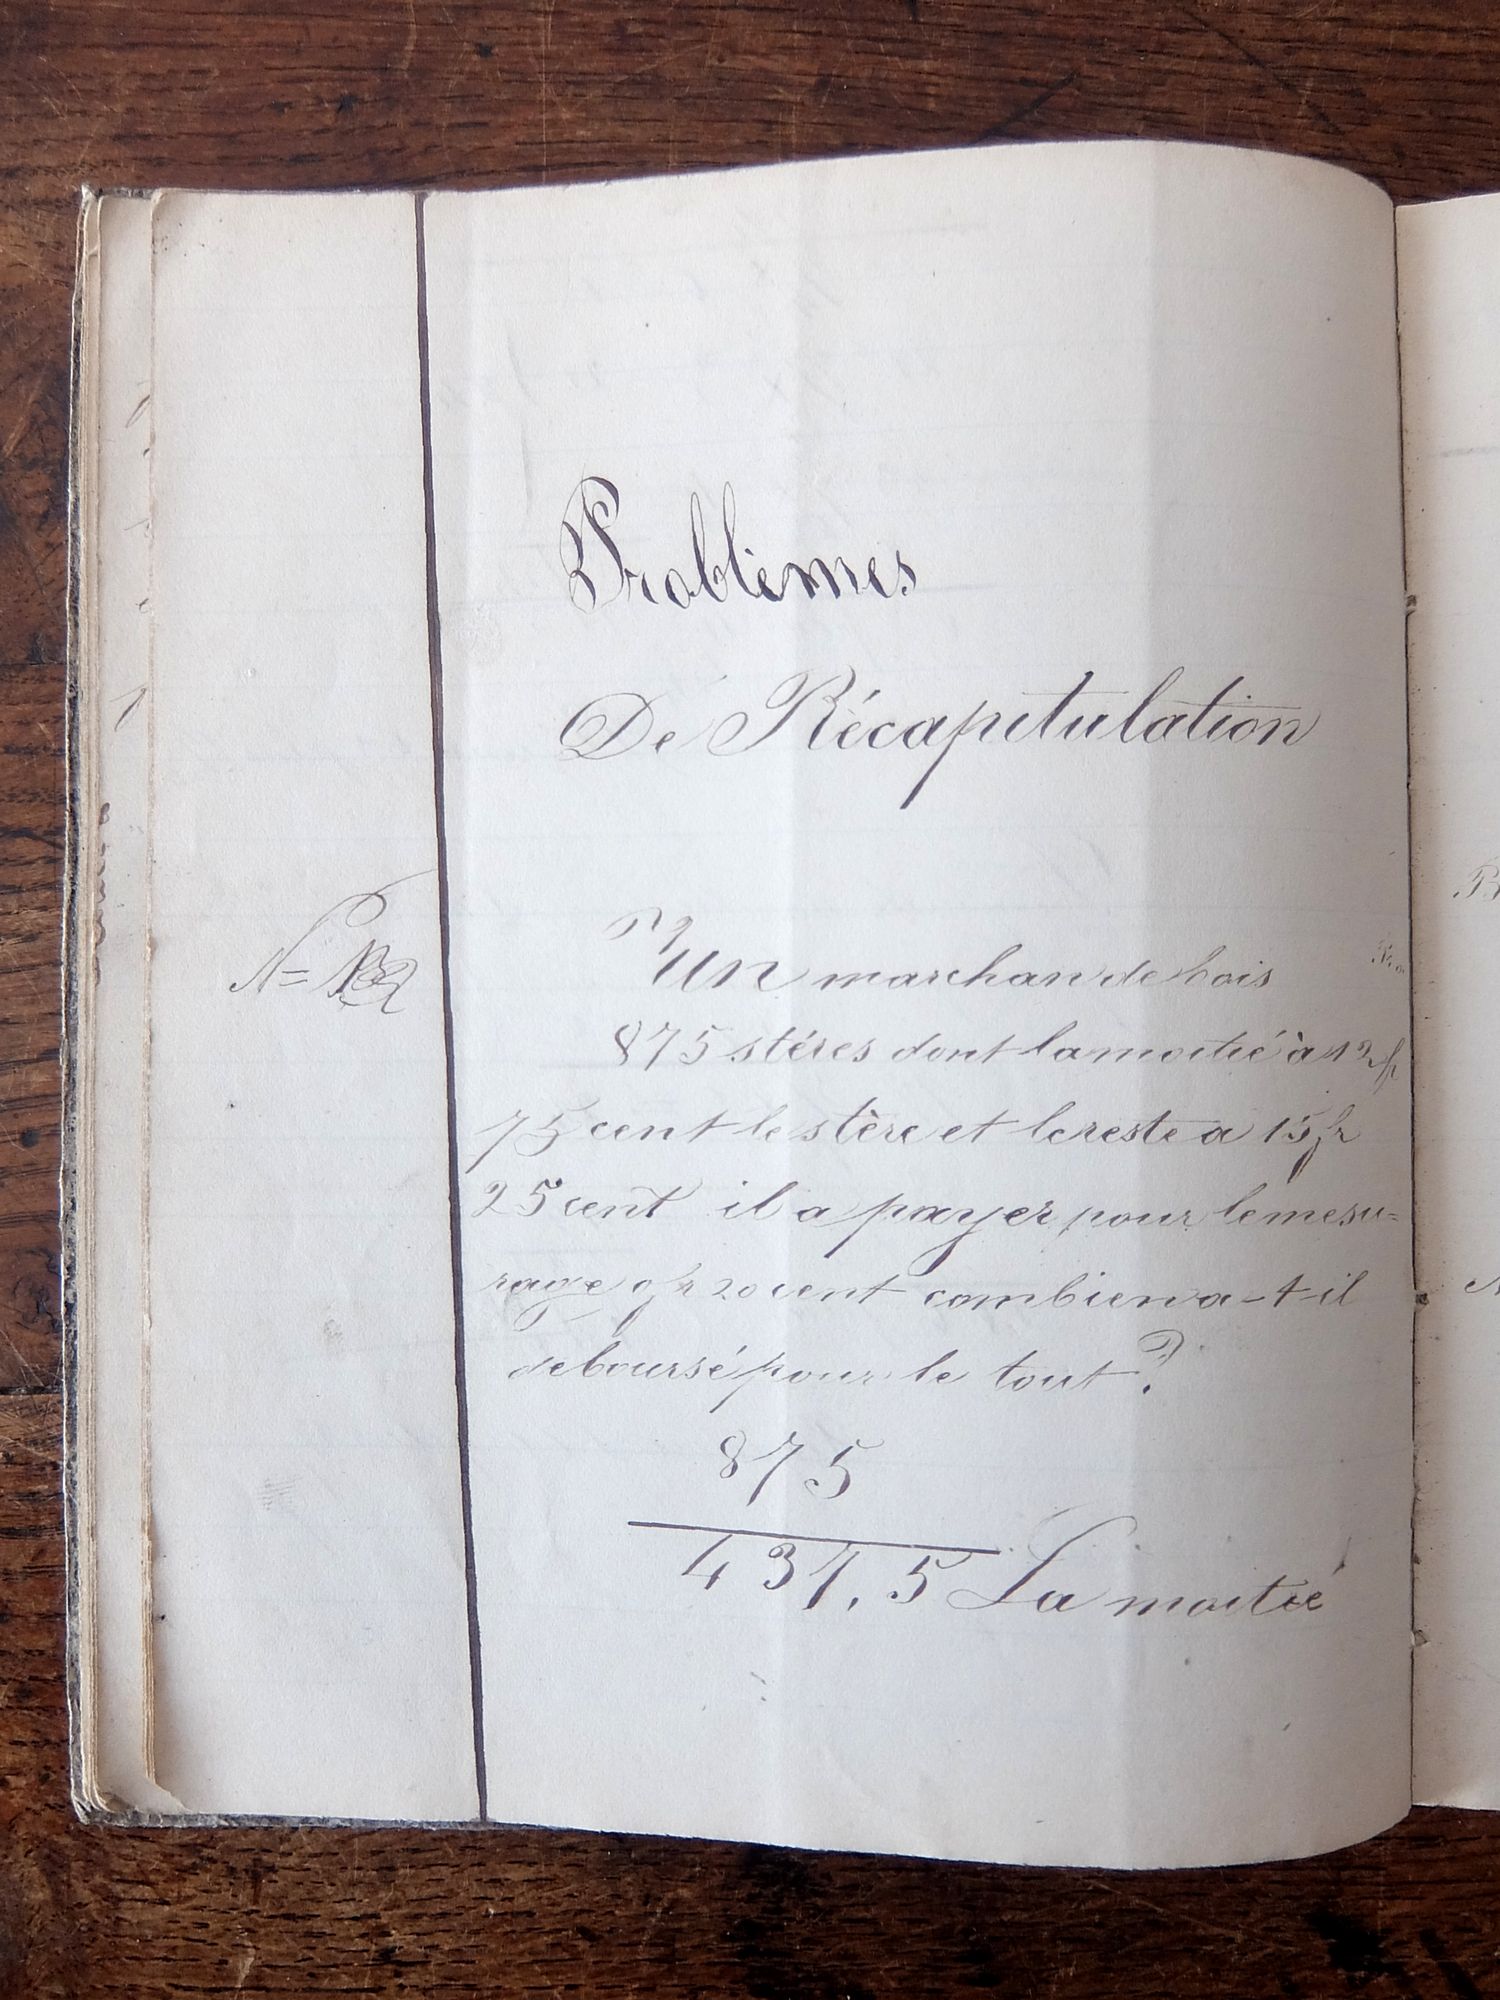 Problèmes
De Récapitulation
N=
Un marchan de bois
875 stéres dont la moitié à 12 f
75 cent le stère et le reste a 15 fr
25 cent il a payer pour le mesu=
rage 9 fr 20 cent combien a-t-il
deboursé pour le tout?
875
437,5 La moitié